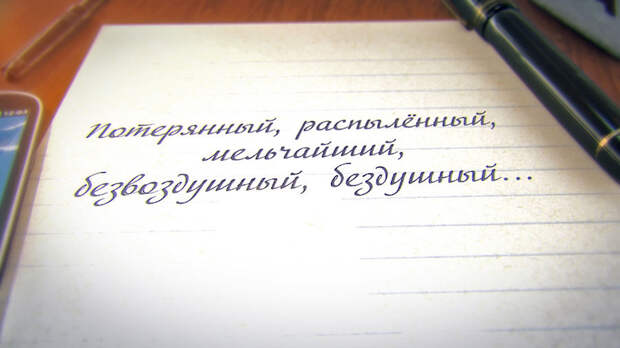 Потерянный, распылённый,
мельчайший,
безвоздушный, бездушный...